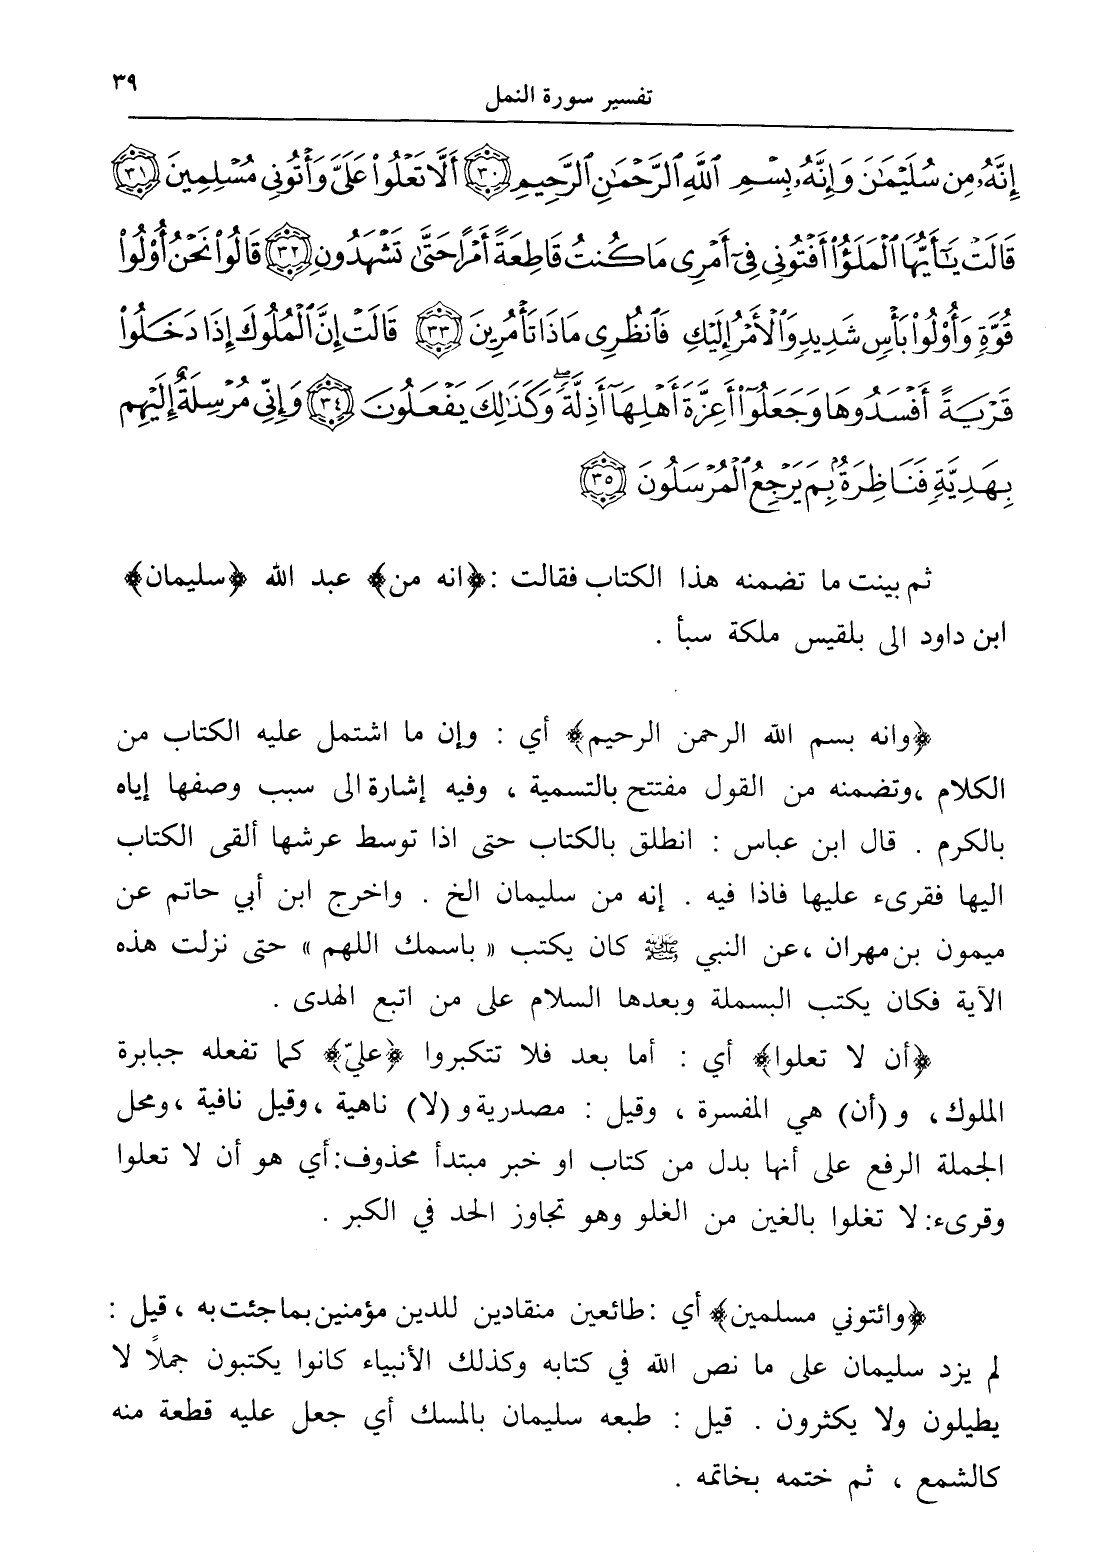 ٣٩
تفسير سورة النمل
إِنَّهُۥ مِن سُلَيْمَٰنَ وَإِنَّهُۥ بِسْمِ ٱللَّهِ ٱلرَّحْمَٰنِ ٱلرَّحِيمِ ﴿٣٠﴾ أَلَّا تَعْلُوا۟ عَلَىَّ وَأْتُونِى مُسْلِمِينَ ﴿٣١﴾
قَالَتْ يَٰٓأَيُّهَا ٱلْمَلَؤُا۟ أَفْتُونِى فِىٓ أَمْرِى مَا كُنتُ قَاطِعَةً أَمْرًا حَتَّىٰ تَشْهَدُونِ ﴿٣٢﴾ قَالُوا۟ نَحْنُ أُو۟لُوا۟
قُوَّةٍ وَأُو۟لُوا۟ بَأْسٍ شَدِيدٍ وَٱلْأَمْرُ إِلَيْكِ فَٱنظُرِى مَاذَا تَأْمُرِينَ ﴿٣٣﴾ قَالَتْ إِنَّ ٱلْمُلُوكَ إِذَا دَخَلُوا۟
قَرْيَةً أَفْسَدُوهَا وَجَعَلُوٓا۟ أَعِزَّةَ أَهْلِهَآ أَذِلَّةً ۖ وَكَذَٰلِكَ يَفْعَلُونَ ﴿٣٤﴾ وَإِنِّى مُرْسِلَةٌ إِلَيْهِم
بِهَدِيَّةٍ فَنَاظِرَةٌۢ بِمَ يَرْجِعُ ٱلْمُرْسَلُونَ ﴿٣٥﴾
ثم بينت ما تضمنه هذا الكتاب فقالت : ﴿انه من﴾ عبد الله ﴿سليمان﴾
ابن داود الى بلقيس ملكة سبأ .
﴿وانه بسم الله الرحمن الرحيم﴾ أي : وإن ما اشتمل عليه الكتاب من
الكلام ، وتضمنه من القول مفتتح بالتسمية ، وفيه إشارة الى سبب وصفها إياه
بالكرم . قال ابن عباس : انطلق بالكتاب حتى اذا توسط عرشها ألقى الكتاب
اليها فقرىء عليها فاذا فيه . إنه من سليمان الخ . واخرج ابن أبي حاتم عن
ميمون بن مهران ، عن النبي ﷺ كان يكتب « باسمك اللهم » حتى نزلت هذه
الآية فكان يكتب البسملة وبعدها السلام على من اتبع الهدى .
﴿أن لا تعلوا﴾ أي : أما بعد فلا تتكبروا ﴿عليّ﴾ كما تفعله جبابرة
الملوك ، و (أن) هي المفسرة ، وقيل : مصدرية و (لا) ناهية ، وقيل نافية ، ومحل
الجملة الرفع على أنها بدل من كتاب او خبر مبتدأ محذوف : أي هو أن لا تعلوا
وقرىء : لا تغلوا بالغين من الغلو وهو تجاوز الحد في الكبر .
﴿وائتوني مسلمين﴾ أي : طائعين منقادين للدين مؤمنين بما جئت به ، قيل :
لم يزد سليمان على ما نص الله في كتابه وكذلك الأنبياء كانوا يكتبون جملاً لا
يطيلون ولا يكثرون . قيل : طبعه سليمان بالمسك أي جعل عليه قطعة منه
كالشمع ، ثم ختمه بخاتمه .